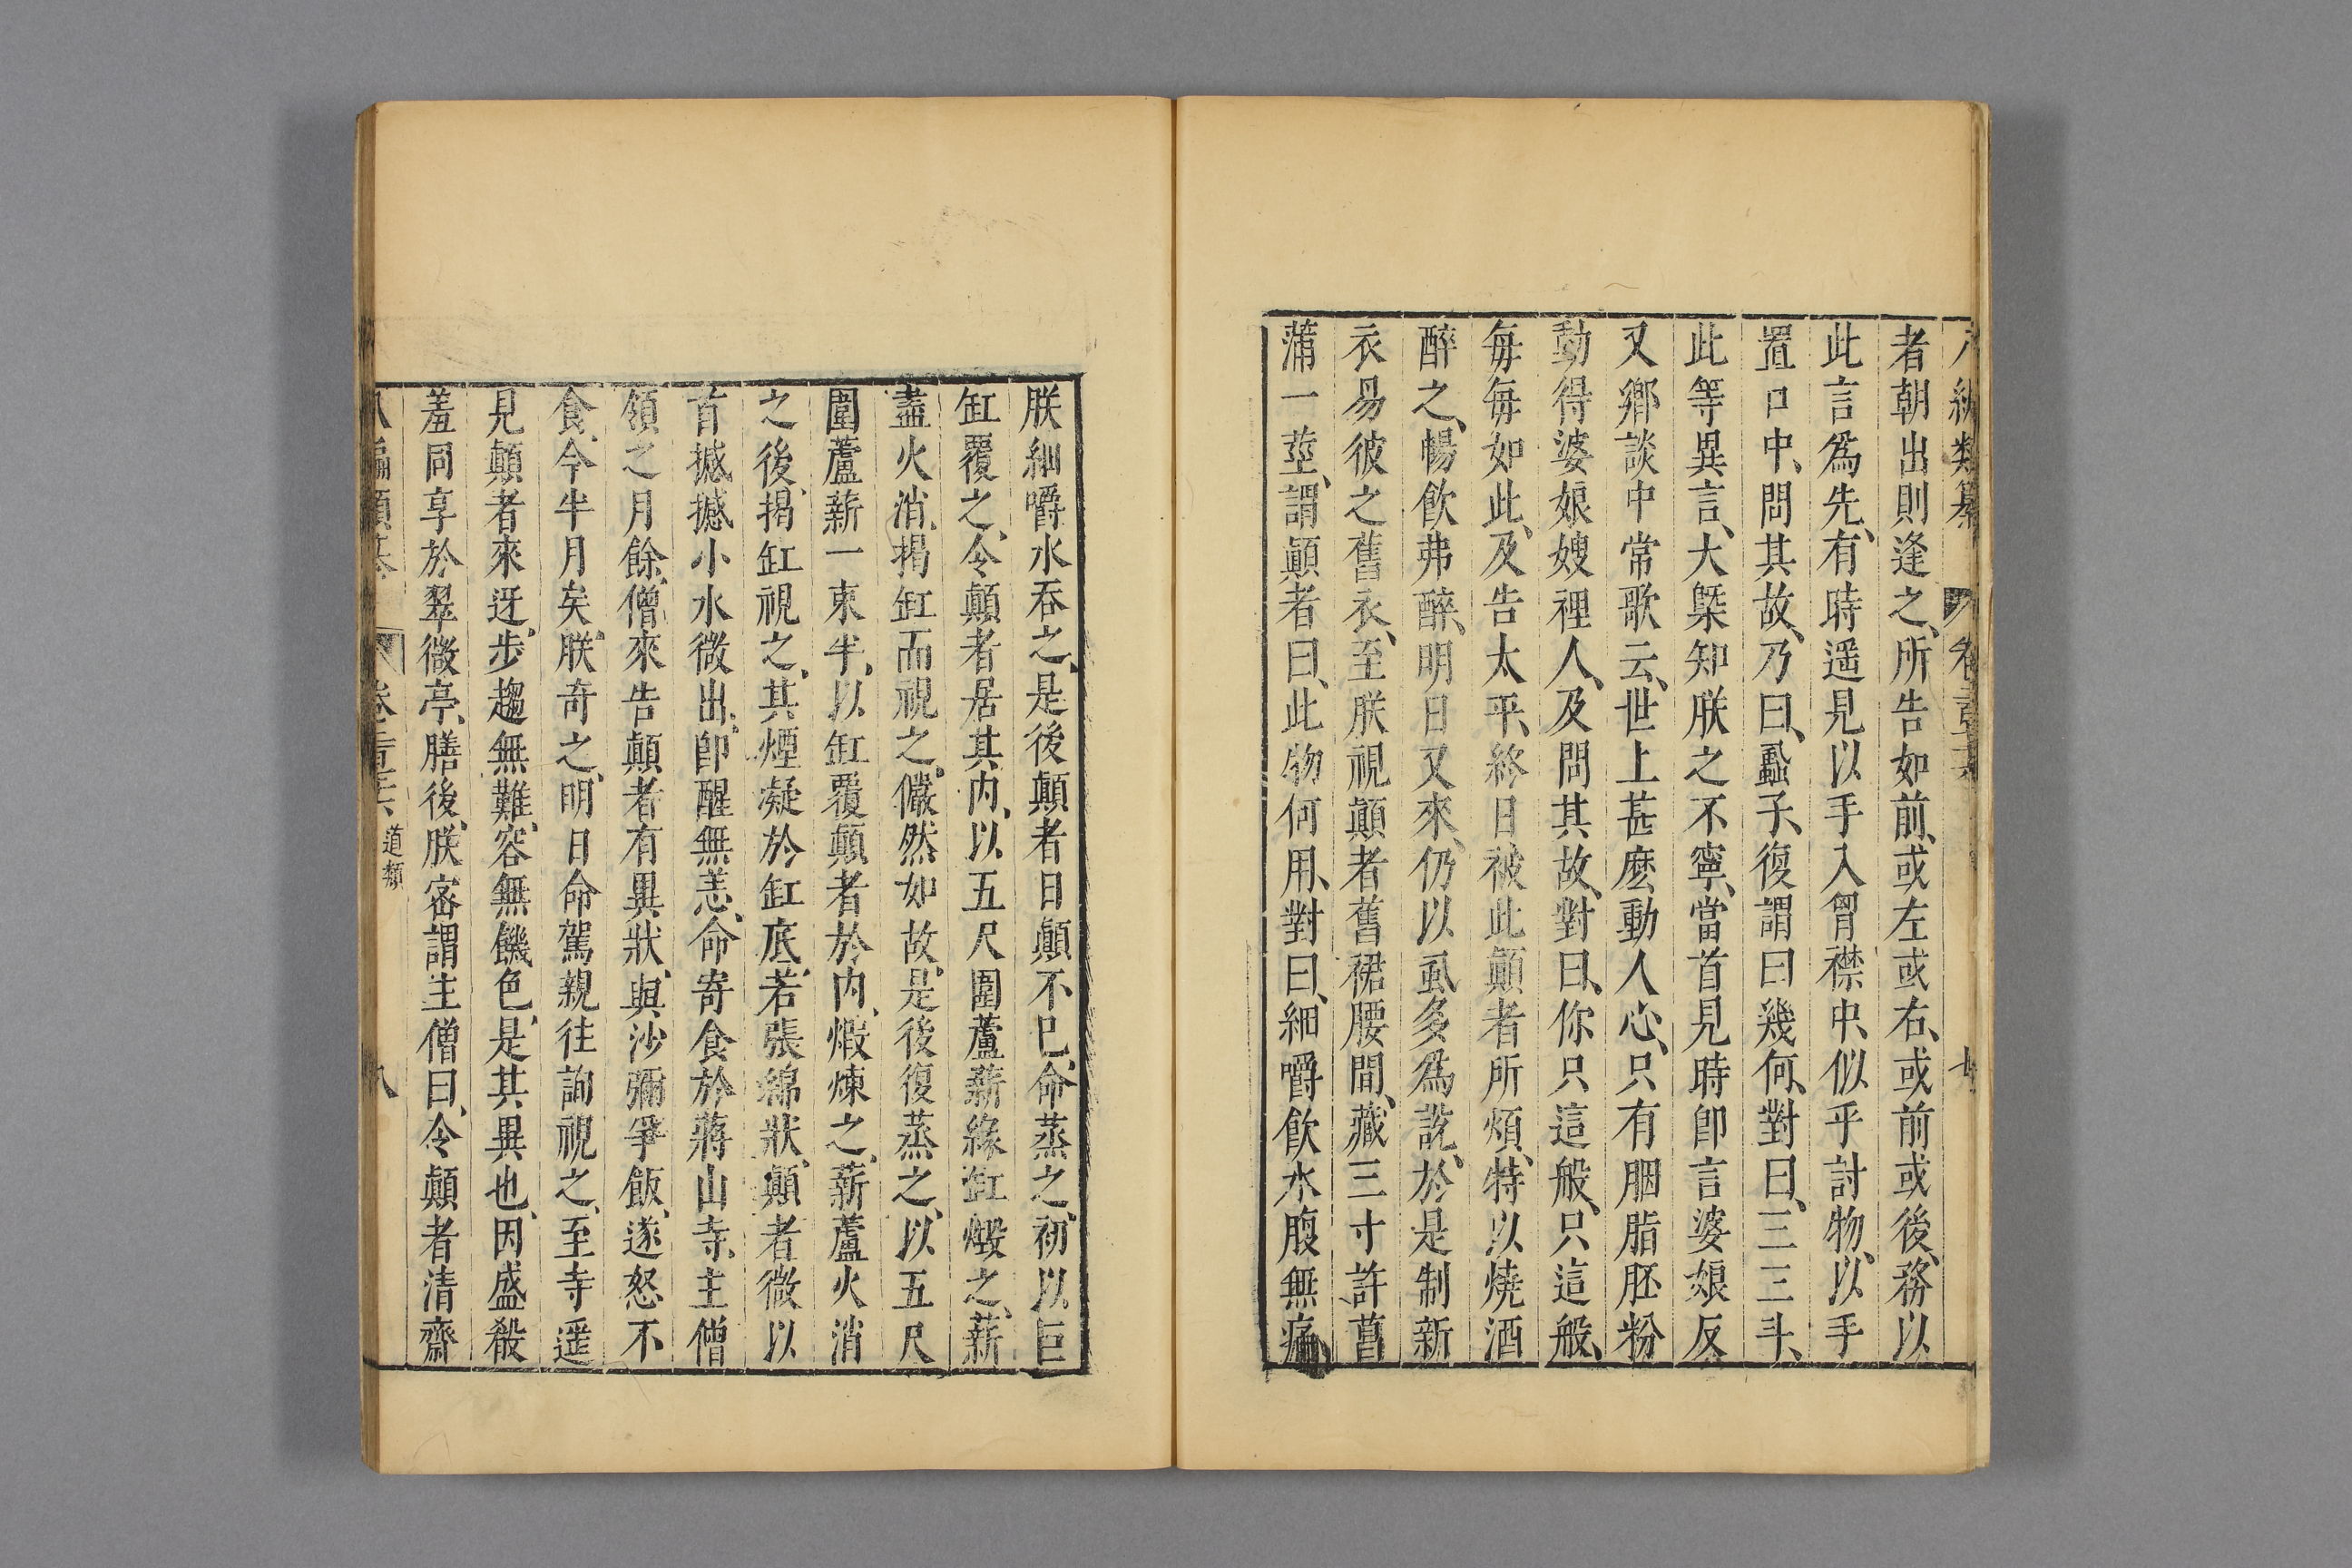 者朝出則逢之、所告如前、或左或右、或前或後、務以
此言爲先、有時遥見以手入胷襟中、似乎討物、以手
置口中、問其故、乃曰、蝨子、復謂曰幾何、對曰、二三斗、
此等異言、大槩知朕之不寧、當首見時卽言婆娘反
又鄉談中常歌云、世上甚麽動人心、只有胭脂胚粉
動得婆娘嫂裡人、及問其故、對曰、你只這般、只這般、
每每如此、及告太平、終日被此顛者所煩、特以燒酒
醉之、暢飲弗醉、明日又來、仍以虱多爲說、於是制新
衣易彼之舊衣、至朕視顛者舊裙腰間、藏三寸許菖
蒲一莖、謂顛者曰、此物何用、對曰、細嚼飲水腹無痛、
朕細嚼水吞之、是後顛者日顛不已、命蒸之、初以巨
缸覆之、令顛者居其內、以五尺圍蘆薪緣缸煅之、薪
盡火消、揭缸而視之、儼然如故、是後復蒸之、以五尺
圍蘆薪一束半、以缸覆顛者於內、煅煉之、薪蘆火消
之後、揭缸視之、其煙凝於缸底、若張綿狀、顛者微以
首撼撼小水微出、卽醒無恙、命寄食於蔣山寺、主僧
領之月餘、僧來告顛者有異狀、與沙彌爭飯、遂怒不
食、今半月矣、朕奇之、明日命駕親往詢視之、至寺遥
見顛者來迓、步趨無難、容無饑色、是其異也、因盛殽
羞同享於翠微亭、膳後、朕密謂主僧曰、令顛者清齋
道類
八